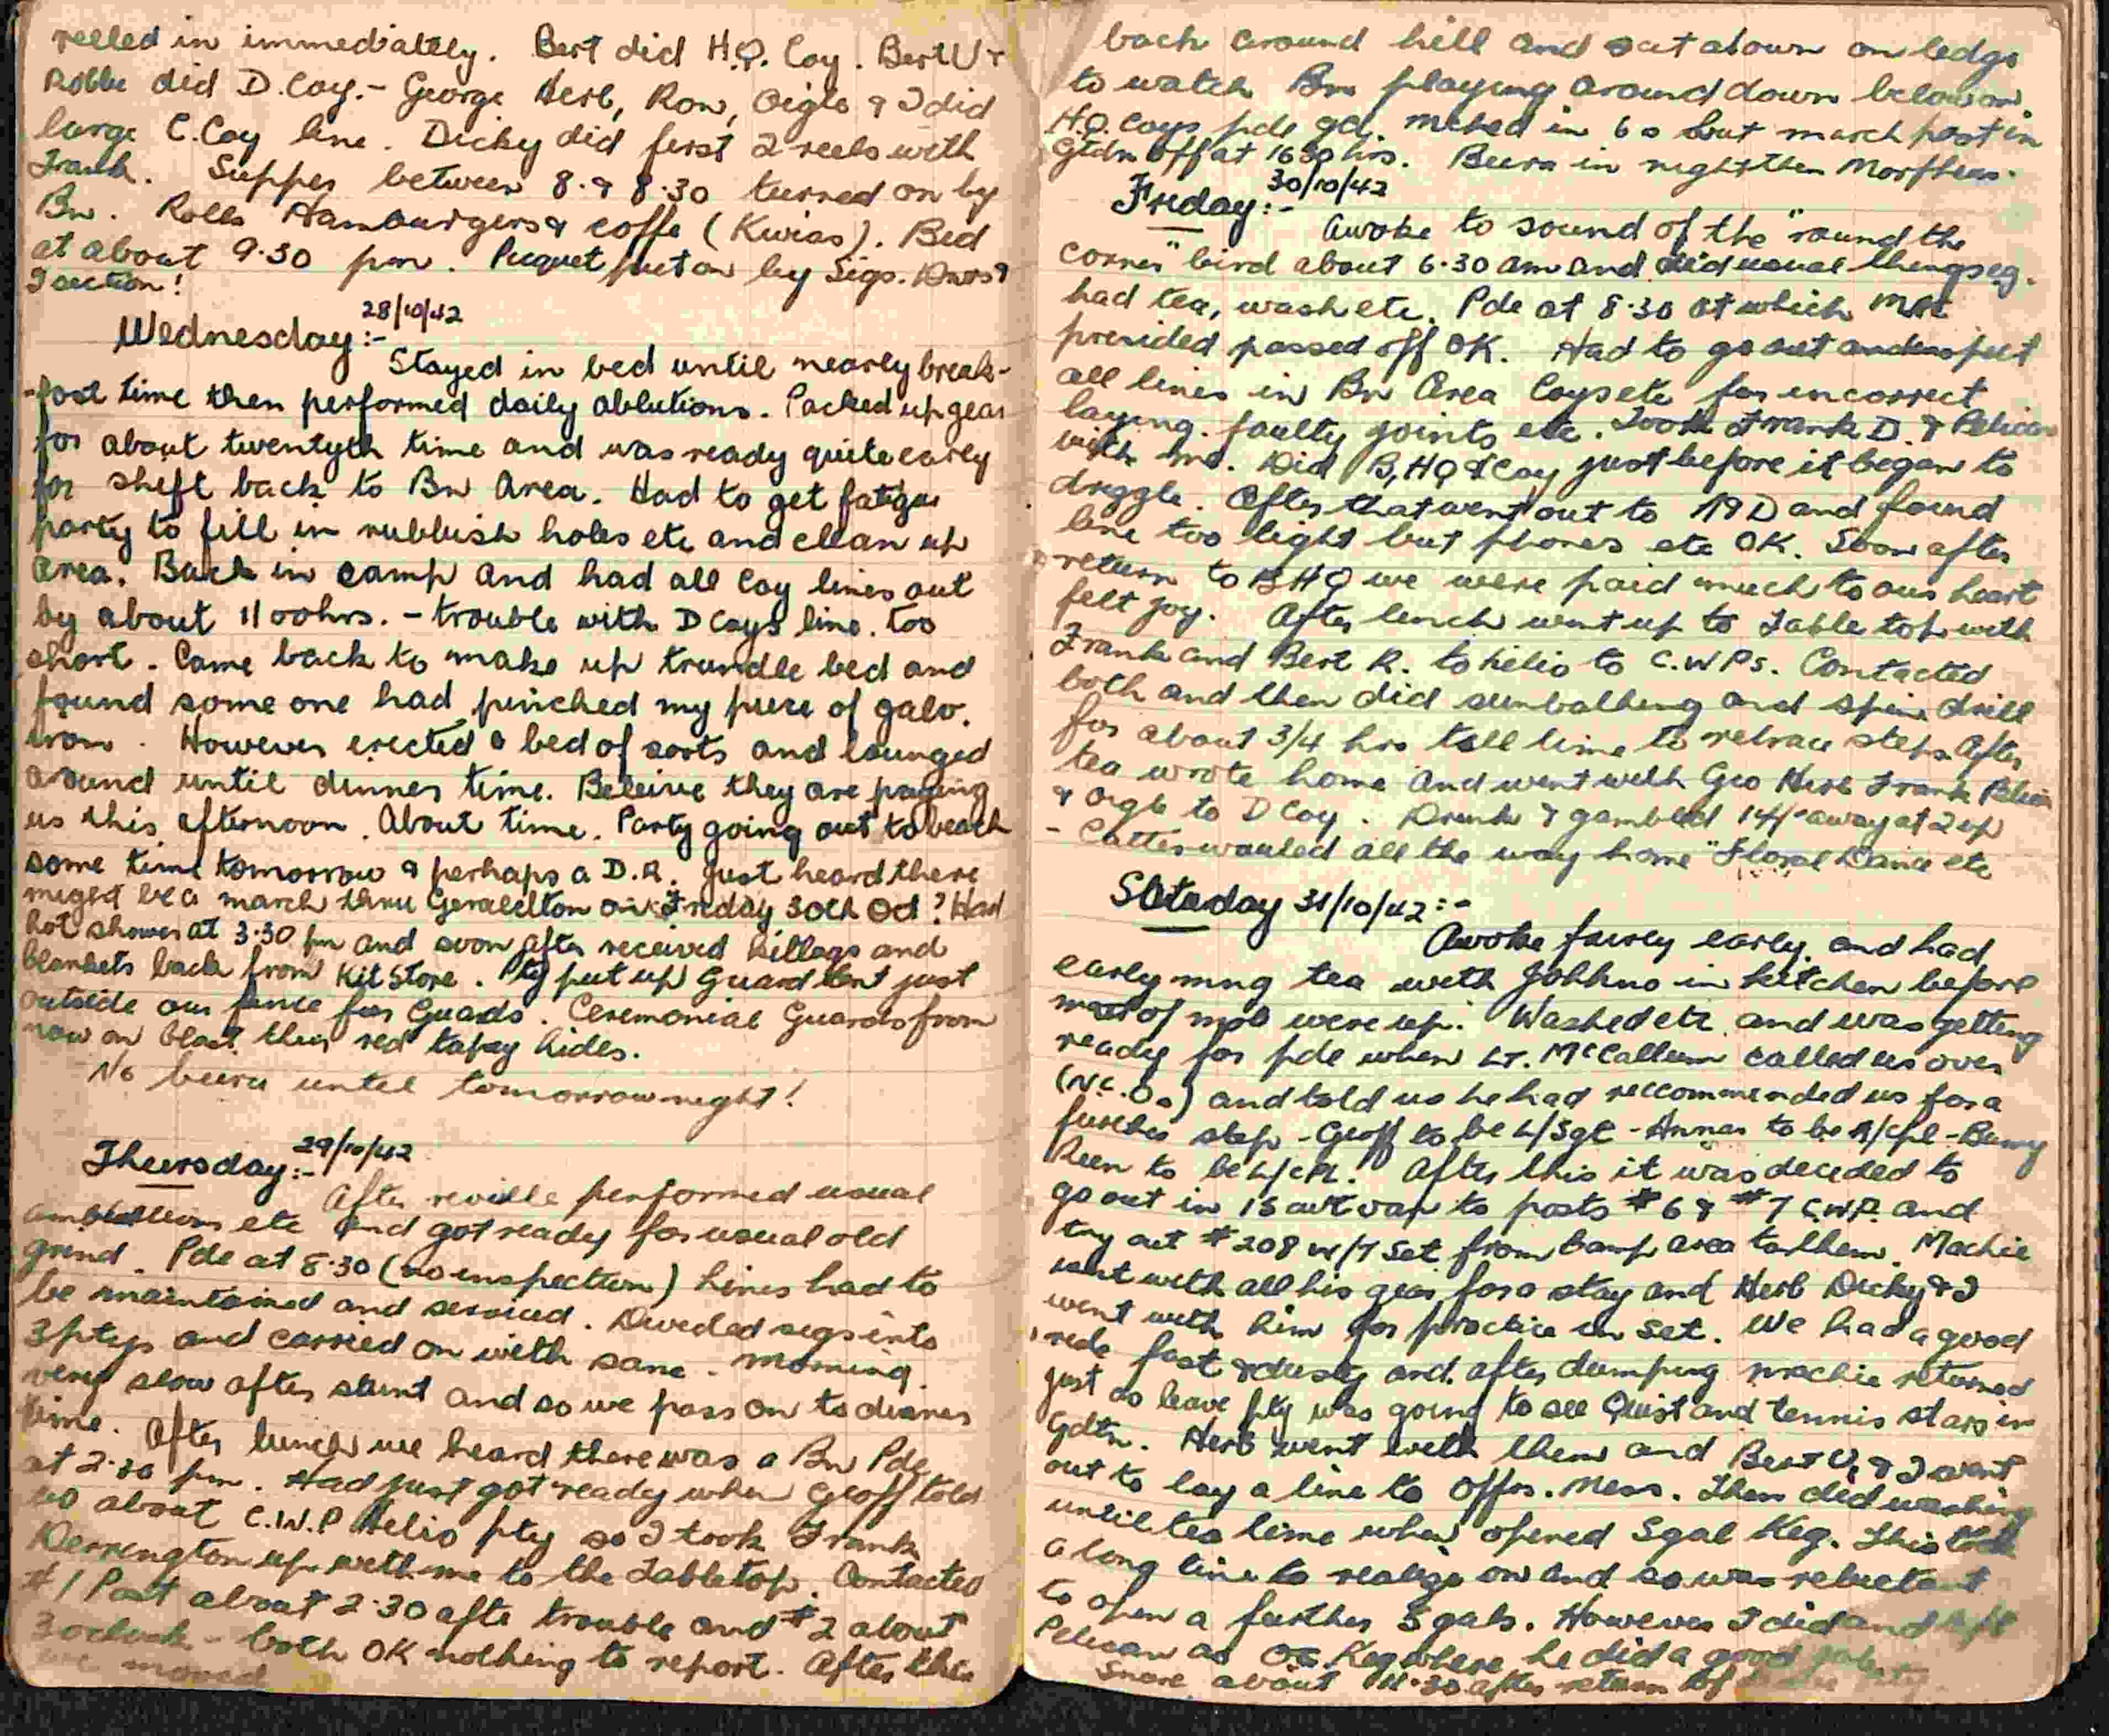 reeled in immediately. Bert did H.Q. Coy. Bert V +
Robbe did D.Coy.- George Herb, Ron, Oigle & I did
large C.Coy line. Dicky did first 2 reels with
Frank. Supper between 8. & 8.30 turned on by
Bn. Rolls Hamburgers & coffe (Kwias). Bed
at about 9.30 pm. Picquet put on by Sigs.
I section!
Wednesday:- 28/10/42
Stayed in bed until nearly break-
-fast time then performed daily ablutions. Packed up gear
for about twentyth time and was ready quite early
for shift back to Bn Area. Had to get fatigue
party to fill in rubbish holes etc and clean up
area. Back in camp and had all Coy lines out
by about 1100hrs. - trouble with D Coys line. too
short. Came back to make up trundle bed and
found some one had pinched my piece of galv.
iron. However erected a bed of sorts and lounged
around until dinner time. Beleive they are paying
us this afternoon. About time. Party going out to beach
some time tomorrow & perhaps a D.R. Just heard there
might be a march thru Geraldton on Friday 30th Oct? Had
hot shower at 3.30 pm and soon after received kitbags and
blankets back from Kit Store. Pty put up Guard tent just
outside our fence for Guards. Ceremonial Guards from
now on blast their red tapey hides.
No beers until tomorrow night!
Thursday:- 29/10/42
After reville performed usual
ambultions etc and got ready for usual old
grind. Pde at 8.30 (no inspection) Lines had to
be maintained and serviced. Divided sigs into
3 ptys and carried on with same - morning
very slow after stunt and so we pass on to dinner
time. After lunch we heard there was a Bn Pde
at 2.30 pm. Had just got ready when Geoff told
us about C.W.P Helio pty so I took Frank
Derrington up with me to the Tabletop. Contacted
#1 Post about 2.30 afte trouble and #2 about
3 oclock - both OK nothing to report. After this
we moved
back around hill and sat down on ledge
to watch Bn playing around down below on
H.Q. Coys pde gd. Mched in 6 o but march past in
Gtdn off at 1630 hrs. Beers in night then Morpheus.
Friday:- 30/10/42
Awoke to sound of the "round the
corner" bird about 6.30 am and did usual things eg.
had tea, wash etc. Pde at 8.30 at which Mac
presided passed off OK. Had to go out and inspect
all lines in Bn Area Coys etc for incorrect
laying. faulty joints etc. Took Frank D. & Pelican
with me. Did B, HQ & Coy just before it began to
drizzle. After that went out to 19 D and found
line too tight but phones etc OK. Soon after
return to BHQ we were paid much to our heart
felt joy. After lunch went up to Table top with
Frank and Bert R. to helio to C.W Ps. Contacted
both and then did sunbathing and spine drill
for about 3/4 hrs till time to retrace steps. After
tea wrote home and went with Geo Herb Frank Pelican
& Oigle to D Coy. Drunk & gambled 14/- away at 2 up
- Catterwauled all the way home "Floral Dance etc
Saturday 31/10/42:-
Awoke fairly early, and had
early mng tea with Johhno in kitchen before
most of mob were up. Washed etc. and was getting
ready for pde when Lt. McCallum called us over
(N.C.Os) and told us he had reccommended us for a
further step - Geoff to be L/Sgt - Annas to be A/cpl - Bunny
Reen to be L/cpl. After this it was decided to
go out in 15 cwt van to posts #6 & #7 C.W.P. and
try out #208 W/T Set from Camp area to them. Mackie
went with all his gear for a stay and Herb Dicky & I
went with him for practice in set. We had a good
ride fast & dusty and after dumping Mackie returned
just as leave pty was going to see Quist and tennis stars in
Gdtn. Herb went with them and Bert V, & I went
out to lay a line to Offrs. Mess. Then did washing
until tea time when opened 5gal Keg. This took
a long time to realize on and so was reluctant
to open a further 5 gals. However I did and left
Pelican as Oc Keg where he did a good
Snore about 11.30 after return of